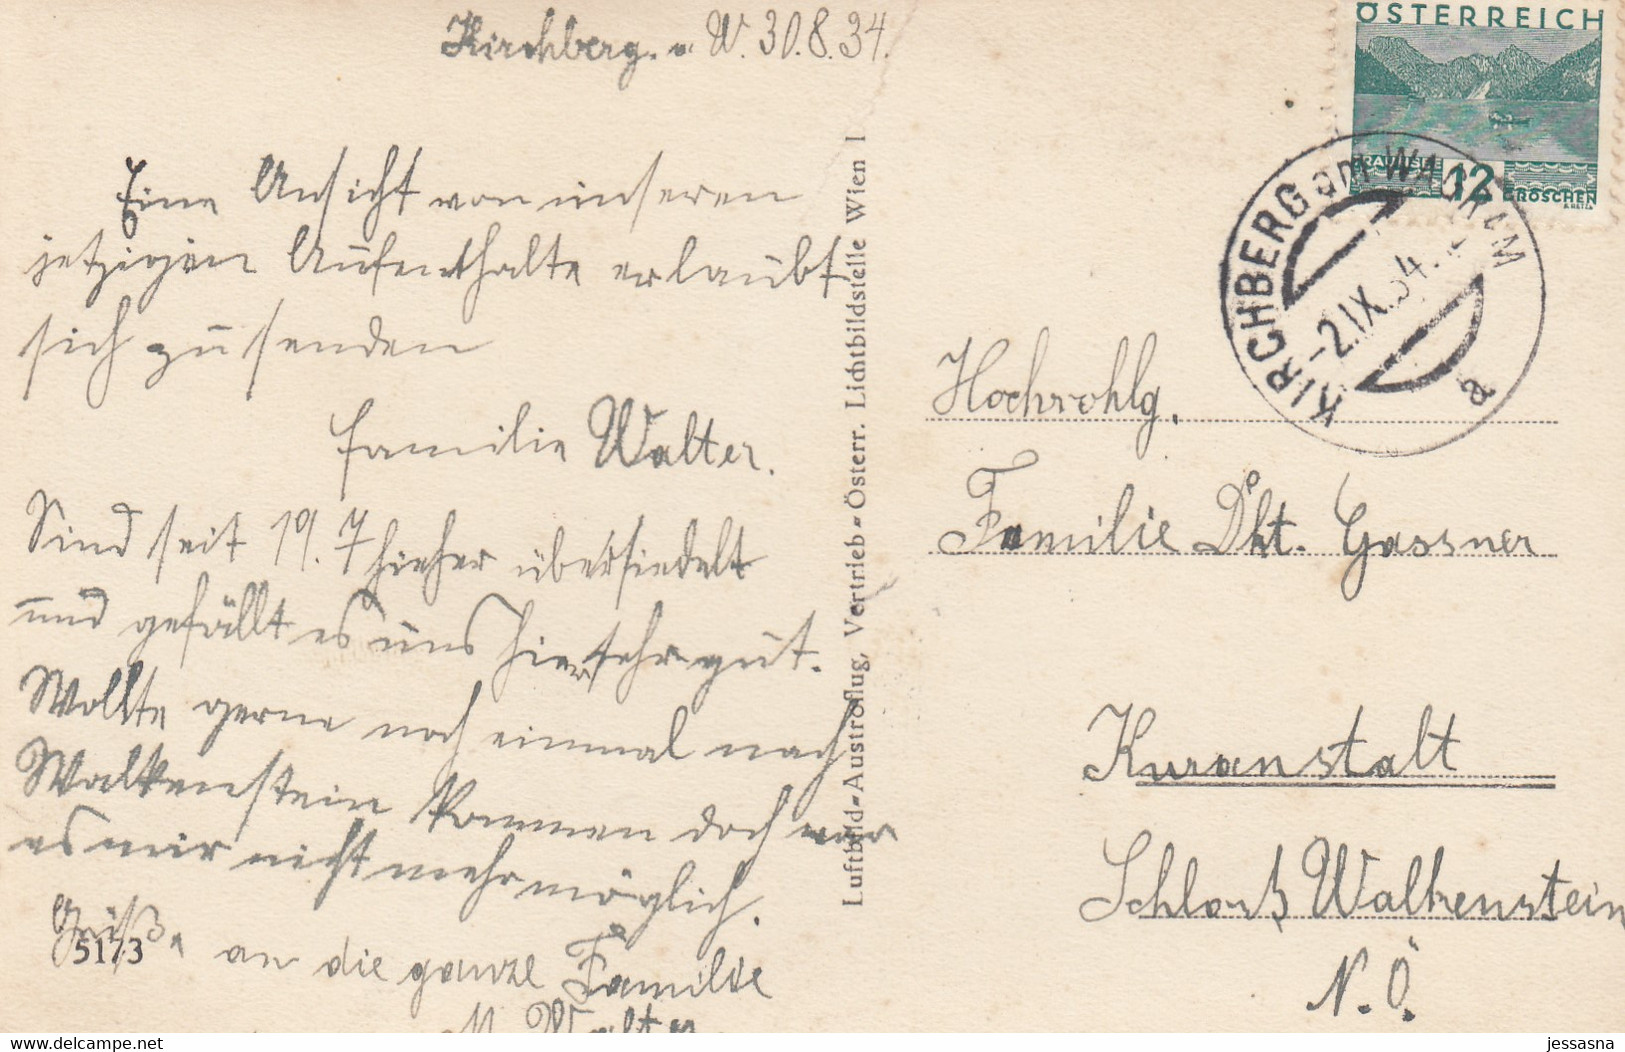 Kirchberg. a. W. 30.8.34.
Eine Ansicht von unseren
jetzigen Aufenthalte erlaubt
sich zu senden
Familie Walter.
Sind seit 19.7 hieher übersiedelt
und gefällt es uns hier sehr gut.
Wollte gerne noch einmal nach
Walkenstein kommen doch war
es mir nicht mehr möglich.
an die ganze Familie
M. Walter
5173
Luftbild-Austroflug, Vertrieb-Österr. Lichtbildstelle Wien I
ÖSTERREICH
TRAUNSEE
12
GROSCHEN
KIRCHBERG am WAGRAM
-2.IX.34
a
Hochwohlg.
Familie Gassner
Kuranstalt
Schloß Walkenstein
N.Ö.
jessasna